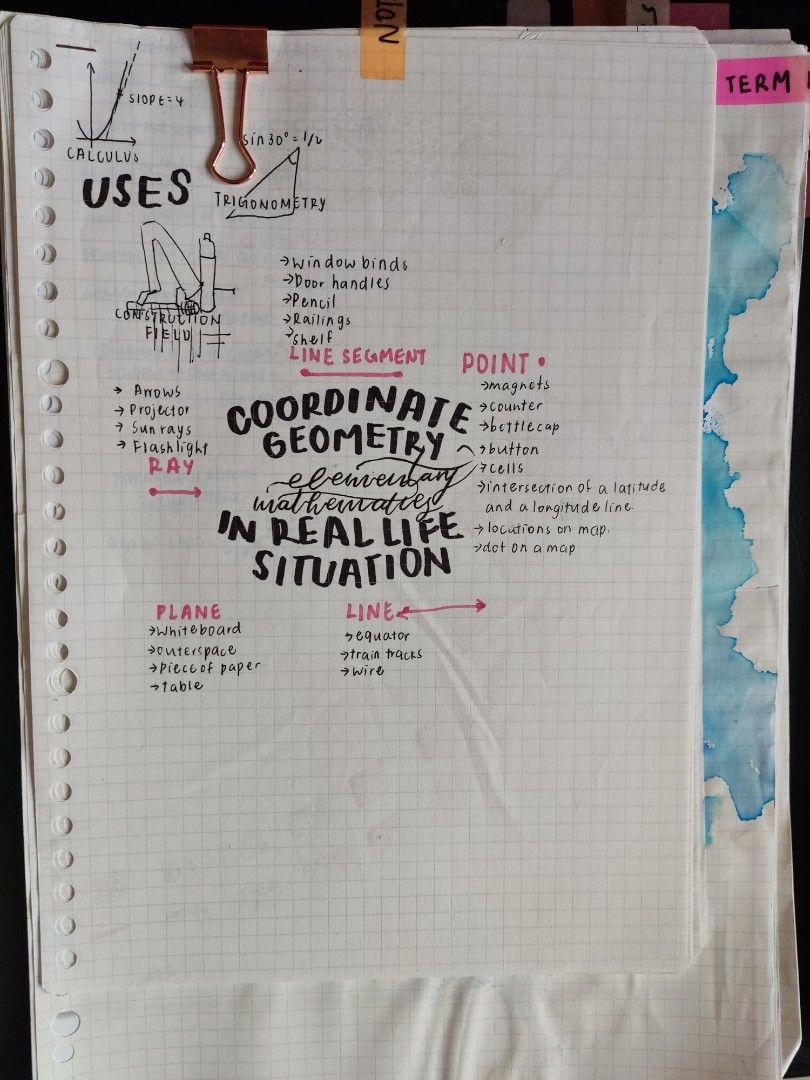 NOL
TERM
SLOPE=4
CALCULUS
sin 30° = 1/2
TRIGONOMETRY
USES
CONSTRUCTION
FIELD
→Window binds
→Door handles
→Pencil
→Railings
→shelf
LINE SEGMENT
POINT •
→magnets
→counter
→bottlecap
→button
→cells
→intersection of a latitude
and a longitude line.
→locations on map.
→dot on a map
→ Arrows
→ Projector
→ Sun rays
→ Flashlight
RAY
COORDINATE
GEOMETRY
elementary
mathematics
IN REAL LIFE
SITUATION
PLANE
→Whiteboard
→outerspace
→piece of paper
→table
LINE
→equator
→train tracks
→wire